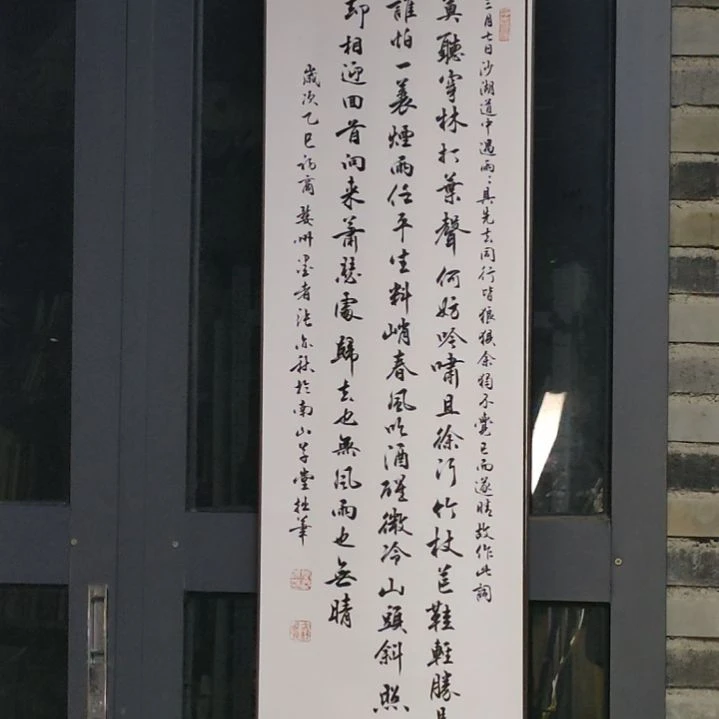 三月七日沙湖道中遇雨雨具先去同行皆狼狽余獨不覺已而遂晴故作此詞
莫聽穿林打葉聲何妨吟嘯且徐行竹杖芒鞋輕勝馬
誰怕一蓑煙雨任平生料峭春風吹酒醒微冷山頭斜照
却相迎回首向来蕭瑟處歸去也無風雨也無晴
歲次乙巳 婺州墨者張 於南山草堂拙筆